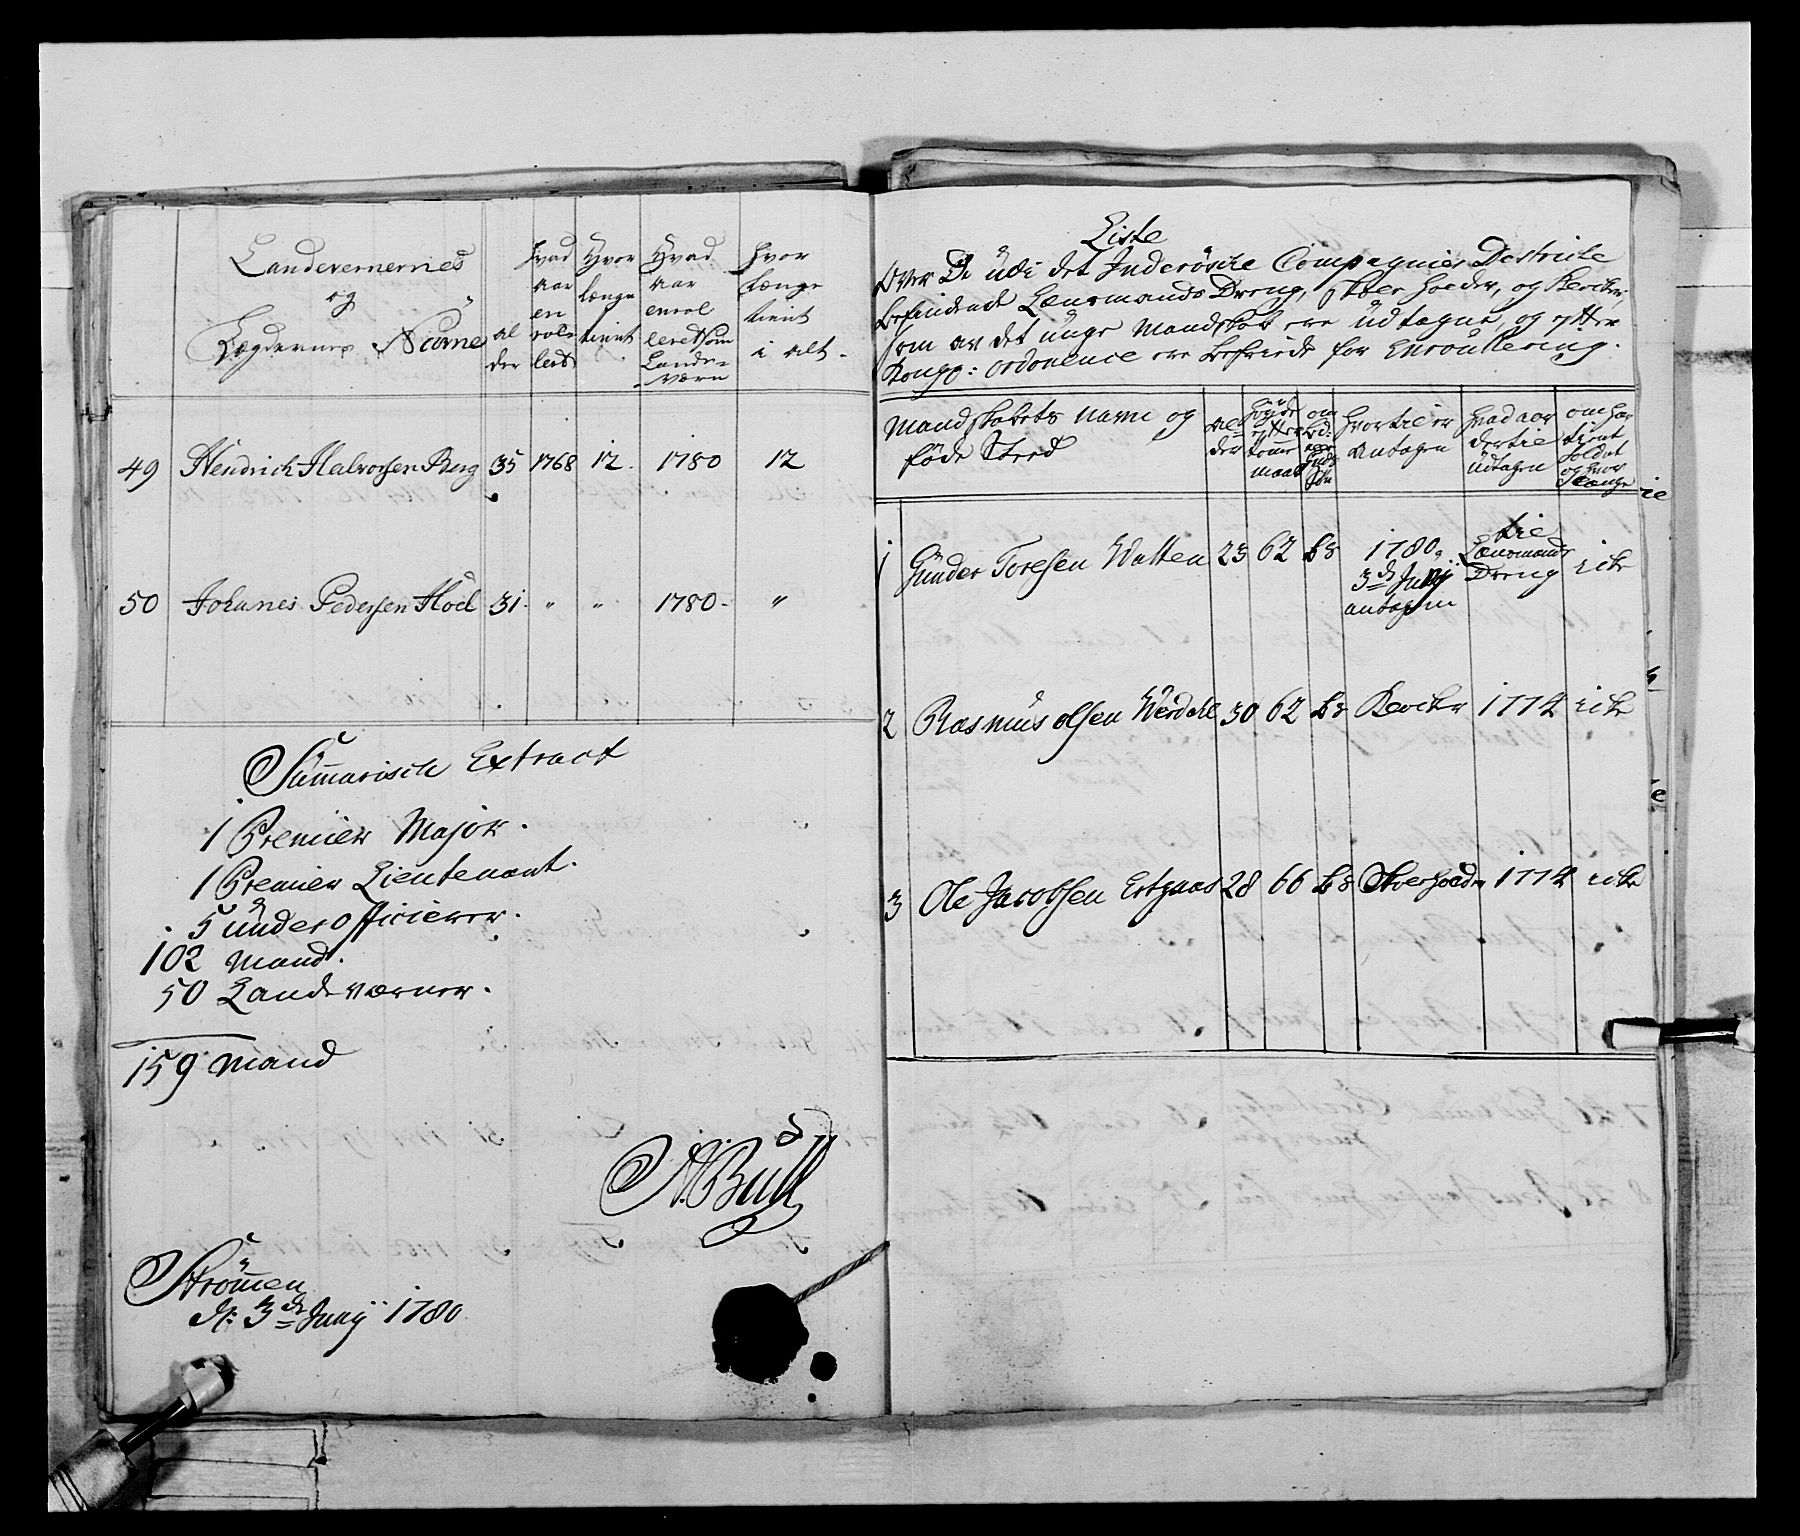 Landevernernes
og
Lægdernes Nafne
al
der
Hvad
aar
en
rolle
lert
Hvor
længe
tient
Hvad
aar
enrol
leret som
Lande-
værn
Hvor
længe
tient
i alt.
49 Hendrich Halvorsen Berg 35 1768 12. 1780 12
50 Johanes Pedersen Hoel 31. " " 1780. "
Summarisch Extract
1 Premier Major.
1 Premier Lieutenant.
5 under officierer.
102 Mand.
50 Landeværner.
159 Mand
A:Bull
Strömmen
d: 3de Junij 1780
Liste
Over De udi det Inderösche Compagnies Destricte
befindende Lænsmands Dreng, og
som av det unge Mandskab ere udtagne, og efter
Kongl: ordonence ere befriede for Enroullering.
Mandskabets navne og
föde Sted
Al-
der
Höyde
efter
tomme
maal
om
Bd:
eller
Huus
Sön
Hvortil er
antagen
Hvad aar
dertil
udtagen
om har
tient
Soldat
og hvor
længe
1 Gunder Toresen Watten 23 62 bs 1780 3de Junij antagen til Lænsmands Dreng icke
2 Rasmus olsen Werdahl 30 62 bs 1774 icke
3 Ole Jacobsen 28 66 bs 1774 icke